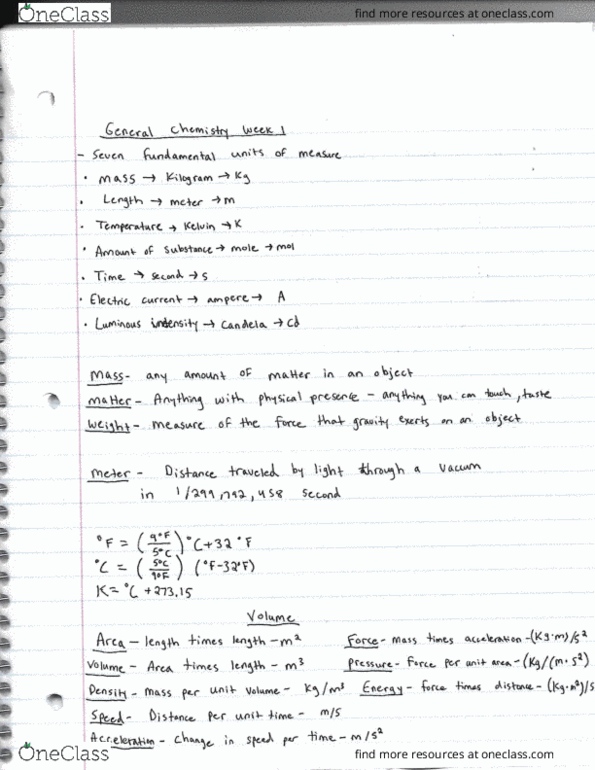 OneClass
find more resources at oneclass.com
General Chemistry Week 1
- Seven fundamental units of measure
• Mass → Kilogram → Kg
• Length → meter → m
• Temperature → Kelvin → K
• Amount of Substance → mole → mol
• Time → second → s
• Electric current → ampere → A
• Luminous indensity → Candela → cd
Mass - any amount of matter in an object
Matter - Anything with physical presence - anything you can touch, taste
Weight - measure of the force that gravity exerts on an object
meter - Distance traveled by light through a vacuum
in 1/299,792,458 second
°F = (9°F/5°C) °C + 32°F
°C = (5°C/9°F) (°F-32°F)
K = °C + 273.15
Volume
Area - length times length - m²
Force - mass times acceleration - (Kg·m)/s²
Volume - Area times length - m³
Pressure - Force per unit area - (Kg/(m·s²)
Density - mass per unit volume - kg/m³
Energy - force times distance - (Kg·m²)/s
Speed - Distance per unit time - m/s
Acceleration - Change in speed per time - m/s²
OneClass
find more resources at oneclass.com